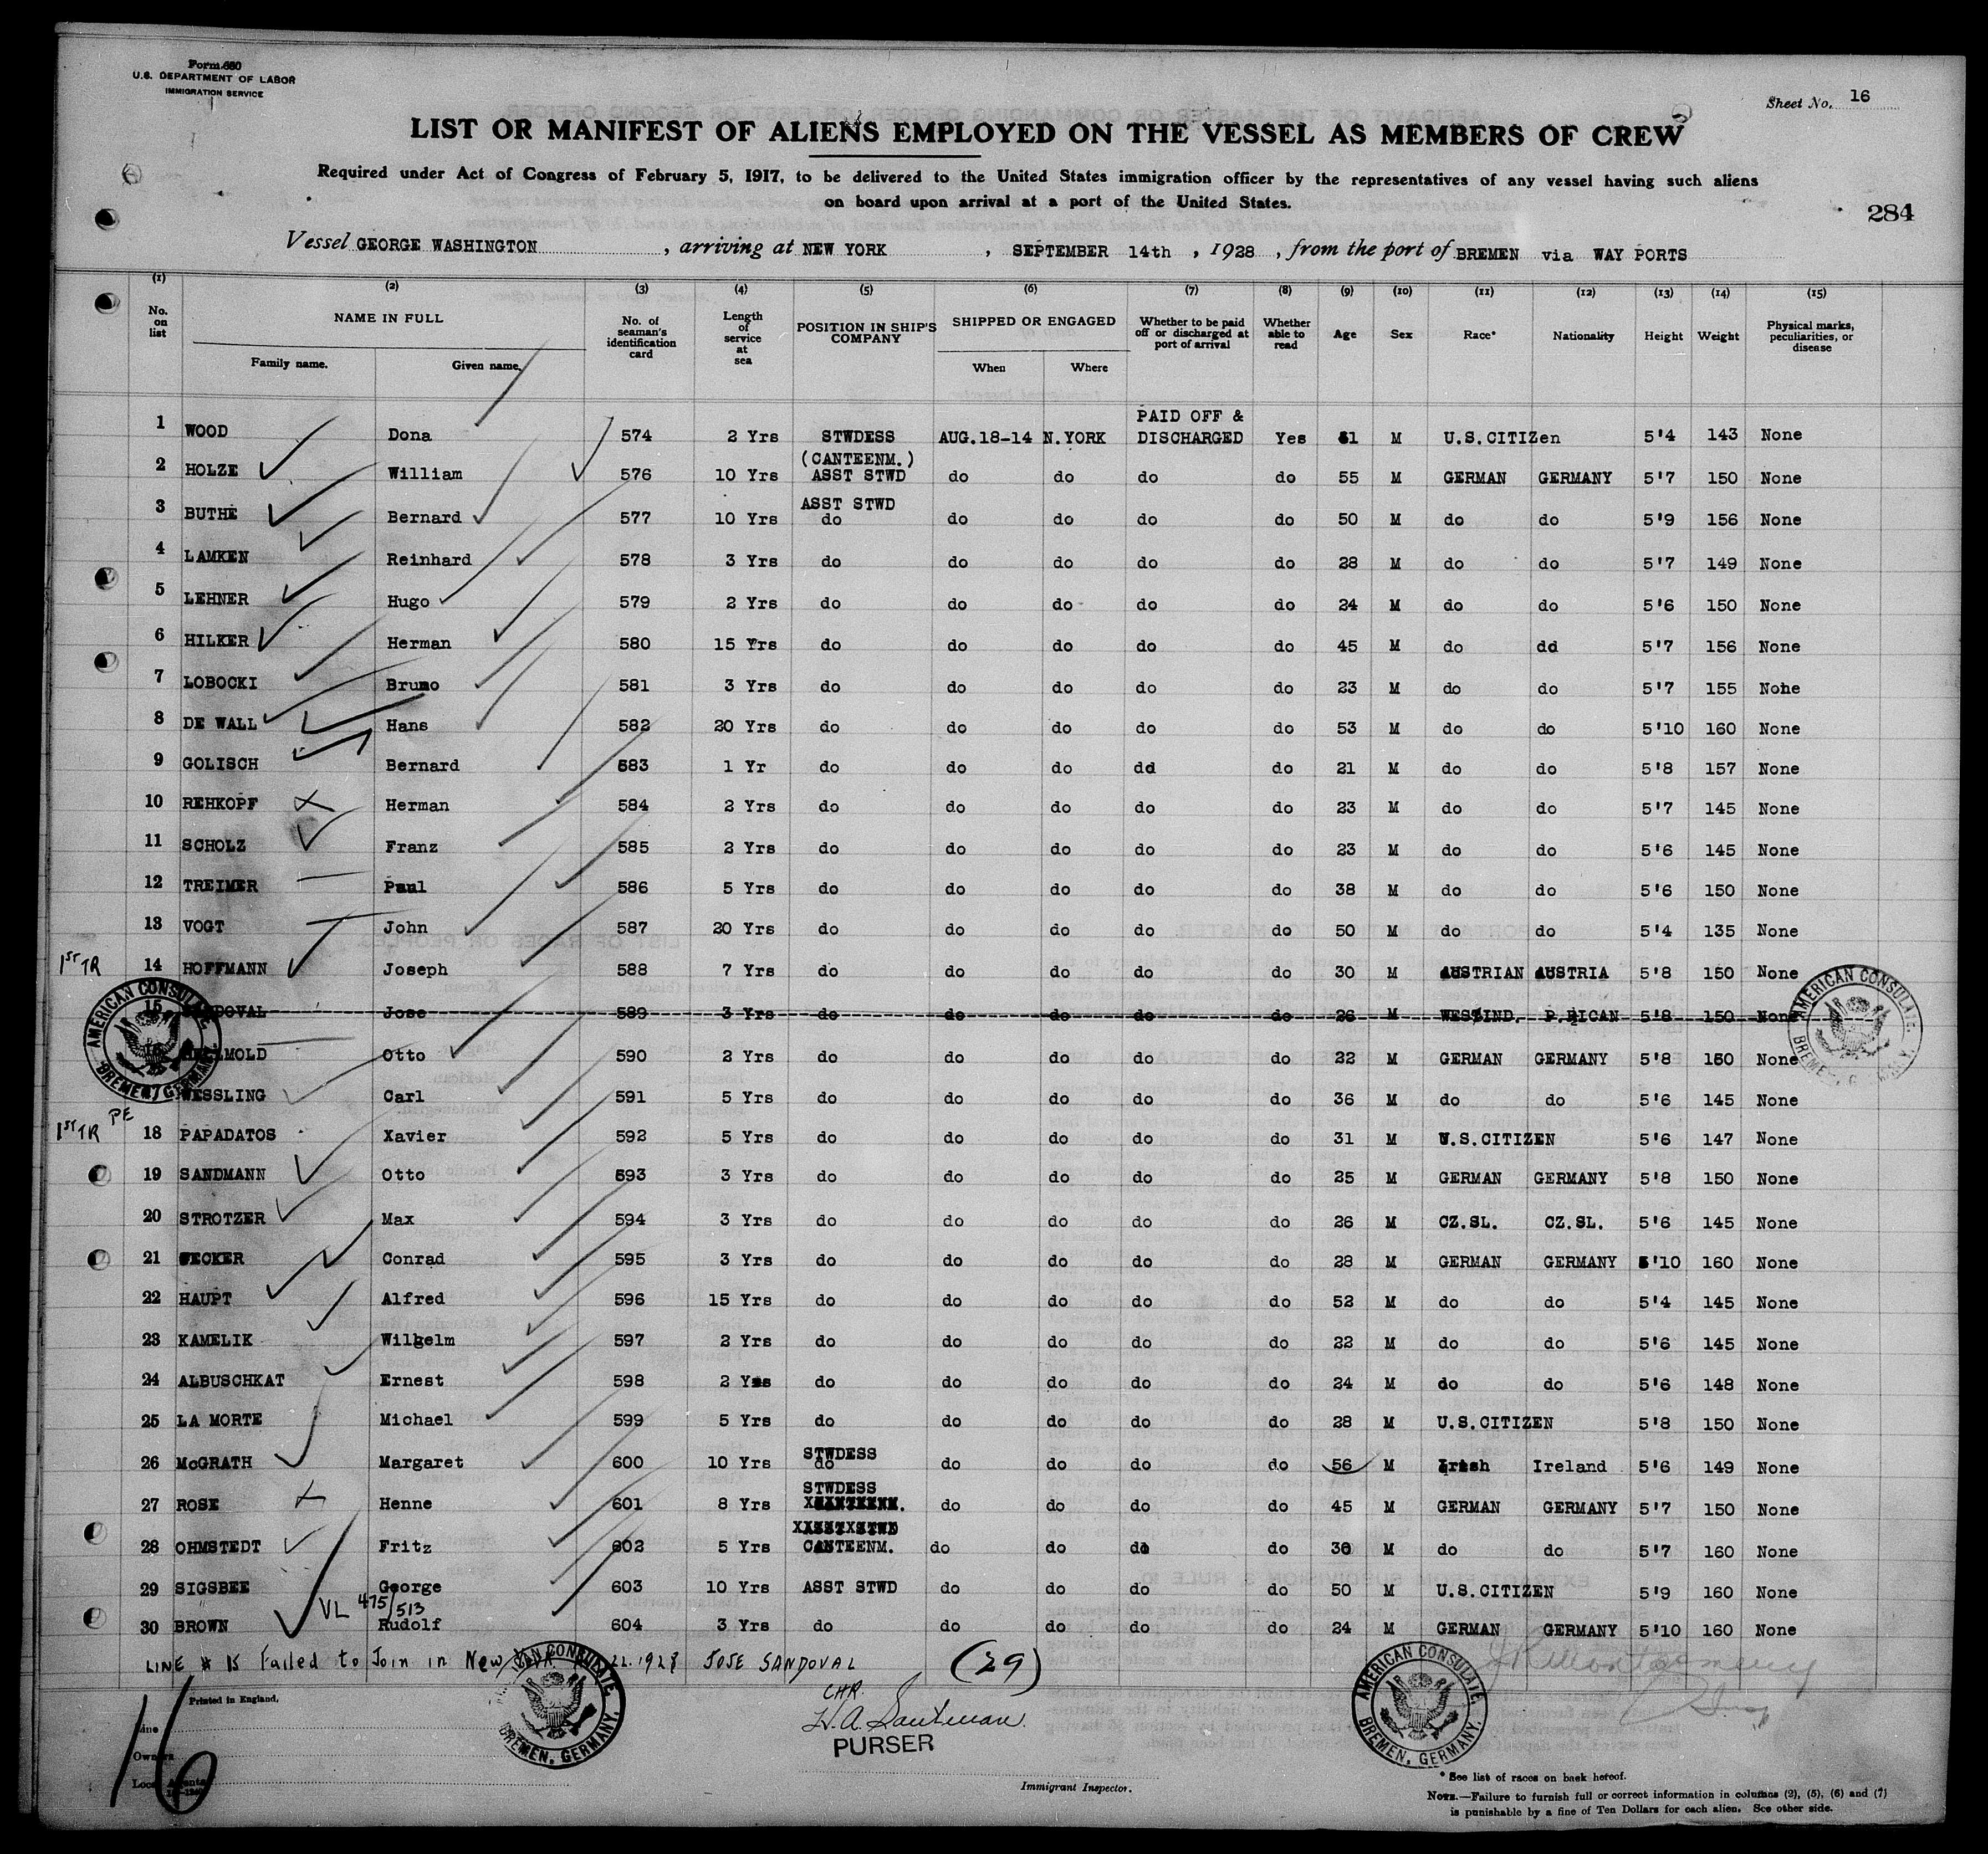 Form 680
U.S. DEPARTMENT OF LABOR
IMMIGRATION SERVICE
Sheet No. 16
LIST OR MANIFEST OF ALIENS EMPLOYED ON THE VESSEL AS MEMBERS OF CREW
Required under Act of Congress of February 5, 1917, to be delivered to the United States immigration officer by the representatives of any vessel having such aliens
on board upon arrival at a port of the United States.
284
Vessel GEORGE WASHINGTON, arriving at NEW YORK, SEPTEMBER 14th, 1928, from the port of BREMEN via WAY PORTS
(1) (2) (3) (4) (5) (6) (7) (8) (9) (10) (11) (12) (13) (14) (15)
No. on list NAME IN FULL Family name. Given name. No. of seaman's identification card Length of service at sea POSITION IN SHIP'S COMPANY SHIPPED OR ENGAGED When Where Whether to be paid off or discharged at port of arrival Whether able to read Age Sex Race* Nationality Height Weight Physical marks, peculiarities, or disease
PAID OFF &
1 WOOD Dona 574 2 Yrs STWDESS AUG.18-14 N.YORK DISCHARGED Yes 1 M U.S.CITIZen 5'4 143 None
(CANTEENM.)
2 HOLZE William 576 10 Yrs ASST STWD do do do do 55 M GERMAN GERMANY 5'7 150 None
ASST STWD
3 BUTHE Bernard 577 10 Yrs do do do do do 50 M do do 5'9 156 None
4 LAMKEN Reinhard 578 3 Yrs do do do do do 28 M do do 5'7 149 None
5 LEHNER Hugo 579 2 Yrs do do do do do 24 M do do 5'6 150 None
6 HILKER Herman 580 15 Yrs do do do do do 45 M do dd 5'7 156 None
7 LOBOCKI Bruno 581 3 Yrs do do do do do 23 M do do 5'7 155 Nohe
8 DE WALL Hans 582 20 Yrs do do do do do 53 M do do 5'10 160 None
9 GOLISCH Bernard 583 1 Yr do do do dd do 21 M do do 5'8 157 None
10 REHKOPF Herman 584 2 Yrs do do do do do 23 M do do 5'7 145 None
11 SCHOLZ Franz 585 2 Yrs do do do do do 23 M do do 5'6 145 None
12 TREIMER Paul 586 5 Yrs do do do do do 38 M do do 5'6 150 None
13 VOGT John 587 20 Yrs do do do do do 50 M do do 5'4 135 None
1ST TR 14 HOFFMANN Joseph 588 7 Yrs do do do do do 30 M AUSTRIAN AUSTRIA 5'8 150 None
15 SANDOVAL Jose 589 3 Yrs do do do do do 26 M WEST IND. P.RICAN 5'8 150 None
16 MOLD Otto 590 2 Yrs do do do do do 22 M GERMAN GERMANY 5'8 160 None
WESSLING Carl 591 5 Yrs do do do do do 36 M do do 5'6 145 None
1ST TR PE 18 PAPADATOS Xavier 592 5 Yrs do do do do do 31 M U.S.CITIZEN 5'6 147 None
19 SANDMANN Otto 593 3 Yrs do do do do do 25 M GERMAN GERMANY 5'8 150 None
20 STROTZER Max 594 3 Yrs do do do do do 26 M CZ.SL. CZ.SL. 5'6 145 None
21 WECKER Conrad 595 3 Yrs do do do do do 28 M GERMAN GERMANY 5'10 160 None
22 HAUPT Alfred 596 15 Yrs do do do do do 52 M do do 5'4 145 None
23 KAMELIK Wilhelm 597 2 Yrs do do do do do 22 M do do 5'6 145 None
24 ALBUSCHKAT Ernest 598 2 Yrs do do do do do 24 M do do 5'6 148 None
25 LA MORTE Michael 599 5 Yrs do do do do do 28 M U.S.CITIZEN 5'8 150 None
STWDESS
26 McGRATH Margaret 600 10 Yrs do do do do do 56 M Irish Ireland 5'6 149 None
STWDESS
27 ROSE Henne 601 8 Yrs do do do do 45 M GERMAN GERMANY 5'7 150 None
28 OHMSTEDT Fritz 602 5 Yrs CANTEENM. do do do do 30 M do do 5'7 160 None
29 SIGSBEE George 603 10 Yrs ASST STWD do do do do 50 M U.S.CITIZEN 5'9 160 None
VL 475/513
30 BROWN Rudolf 604 3 Yrs do do do do do 24 M GERMAN GERMANY 5'10 160 None
LINE # 15 Failed to Join in New York 22.1928 JOSE SANDOVAL (29)
AMERICAN CONSULATE, BREMEN, GERMANY.
AMERICAN CONSULATE, BREMEN, G
AMERICAN CONSULATE, BREMEN, GERMANY.
AMERICAN CONSULATE, BREMEN, GERMANY.
Printed in England.
CHR
PURSER
Line
Owners
Local Agents
16
Immigrant Inspector.
* See list of races on back hereof.
NOTE.—Failure to furnish full or correct information in columns (2), (5), (6) and (7)
is punishable by a fine of Ten Dollars for each alien. See other side.